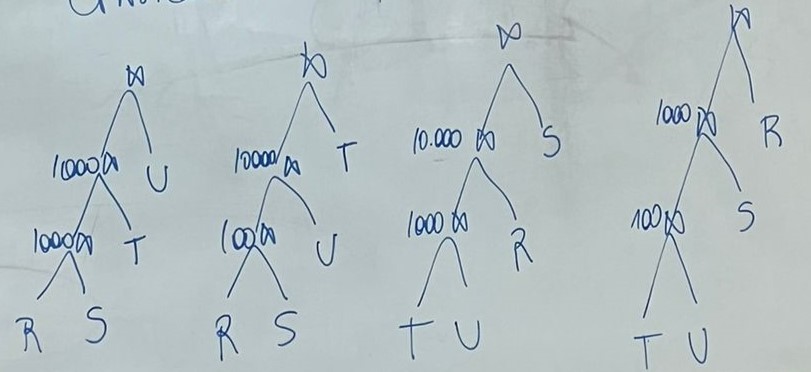 ⋈
1000⋈ U
1000⋈ T
R S
⋈
10000⋈ T
100⋈ U
R S
⋈
10.000 ⋈ S
1000 ⋈ R
T U
⋈
1000 ⋈ R
100⋈ S
T U